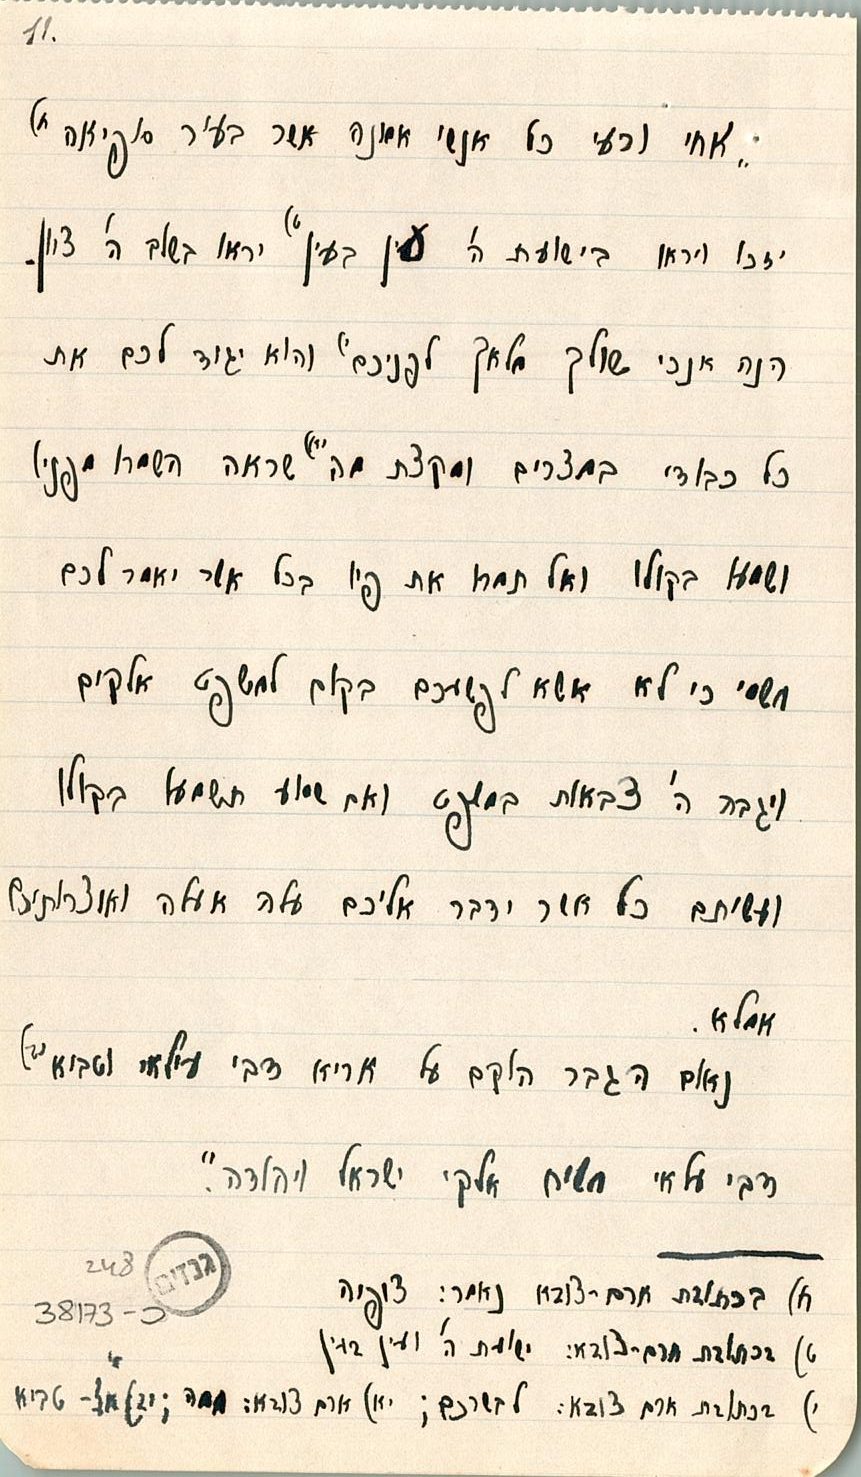 11.
„אחי ורעי כל אנשי אמונה אשר בעיר סופיאה ח)
יזכו ויראו בישועת ה' עין בעין ט) יראו בשוב ה' ציון.
הנה אנכי שולך מלאך לפניכם י) והוא יגיד לכם את
כל כבודי במצרים ומקצת מה יא) שראה השמרו מפניו
ושמעו בקולו ואל תמרו את פיו בכל אשר יאמר לכם
משמי כי לא אשא לפשעכם בקום למשפט אלקים
ויגבה ה' צבאות במשפט ואם שמוע תשמעו בקולו
ועשיתם כל אשר ידבר אליכם עלה אעלה ואוצרותיכם
אמלא.
נאום הגבר הוקם על אריא דבי עילאי וטביא יב)
דבי עלאי משיח אלקי ישראל ויהודה."
ח) בכתובת ארם-צובא נאמר: צופיה
ט) בכתובת ארם-צובא: ישועת ה' ועין בעין
י) בכתובת ארם צובא: לבשרכם; יא) ארם צובא: ממה; יב) א"צ- טביא
גנזים
248
כ-38173